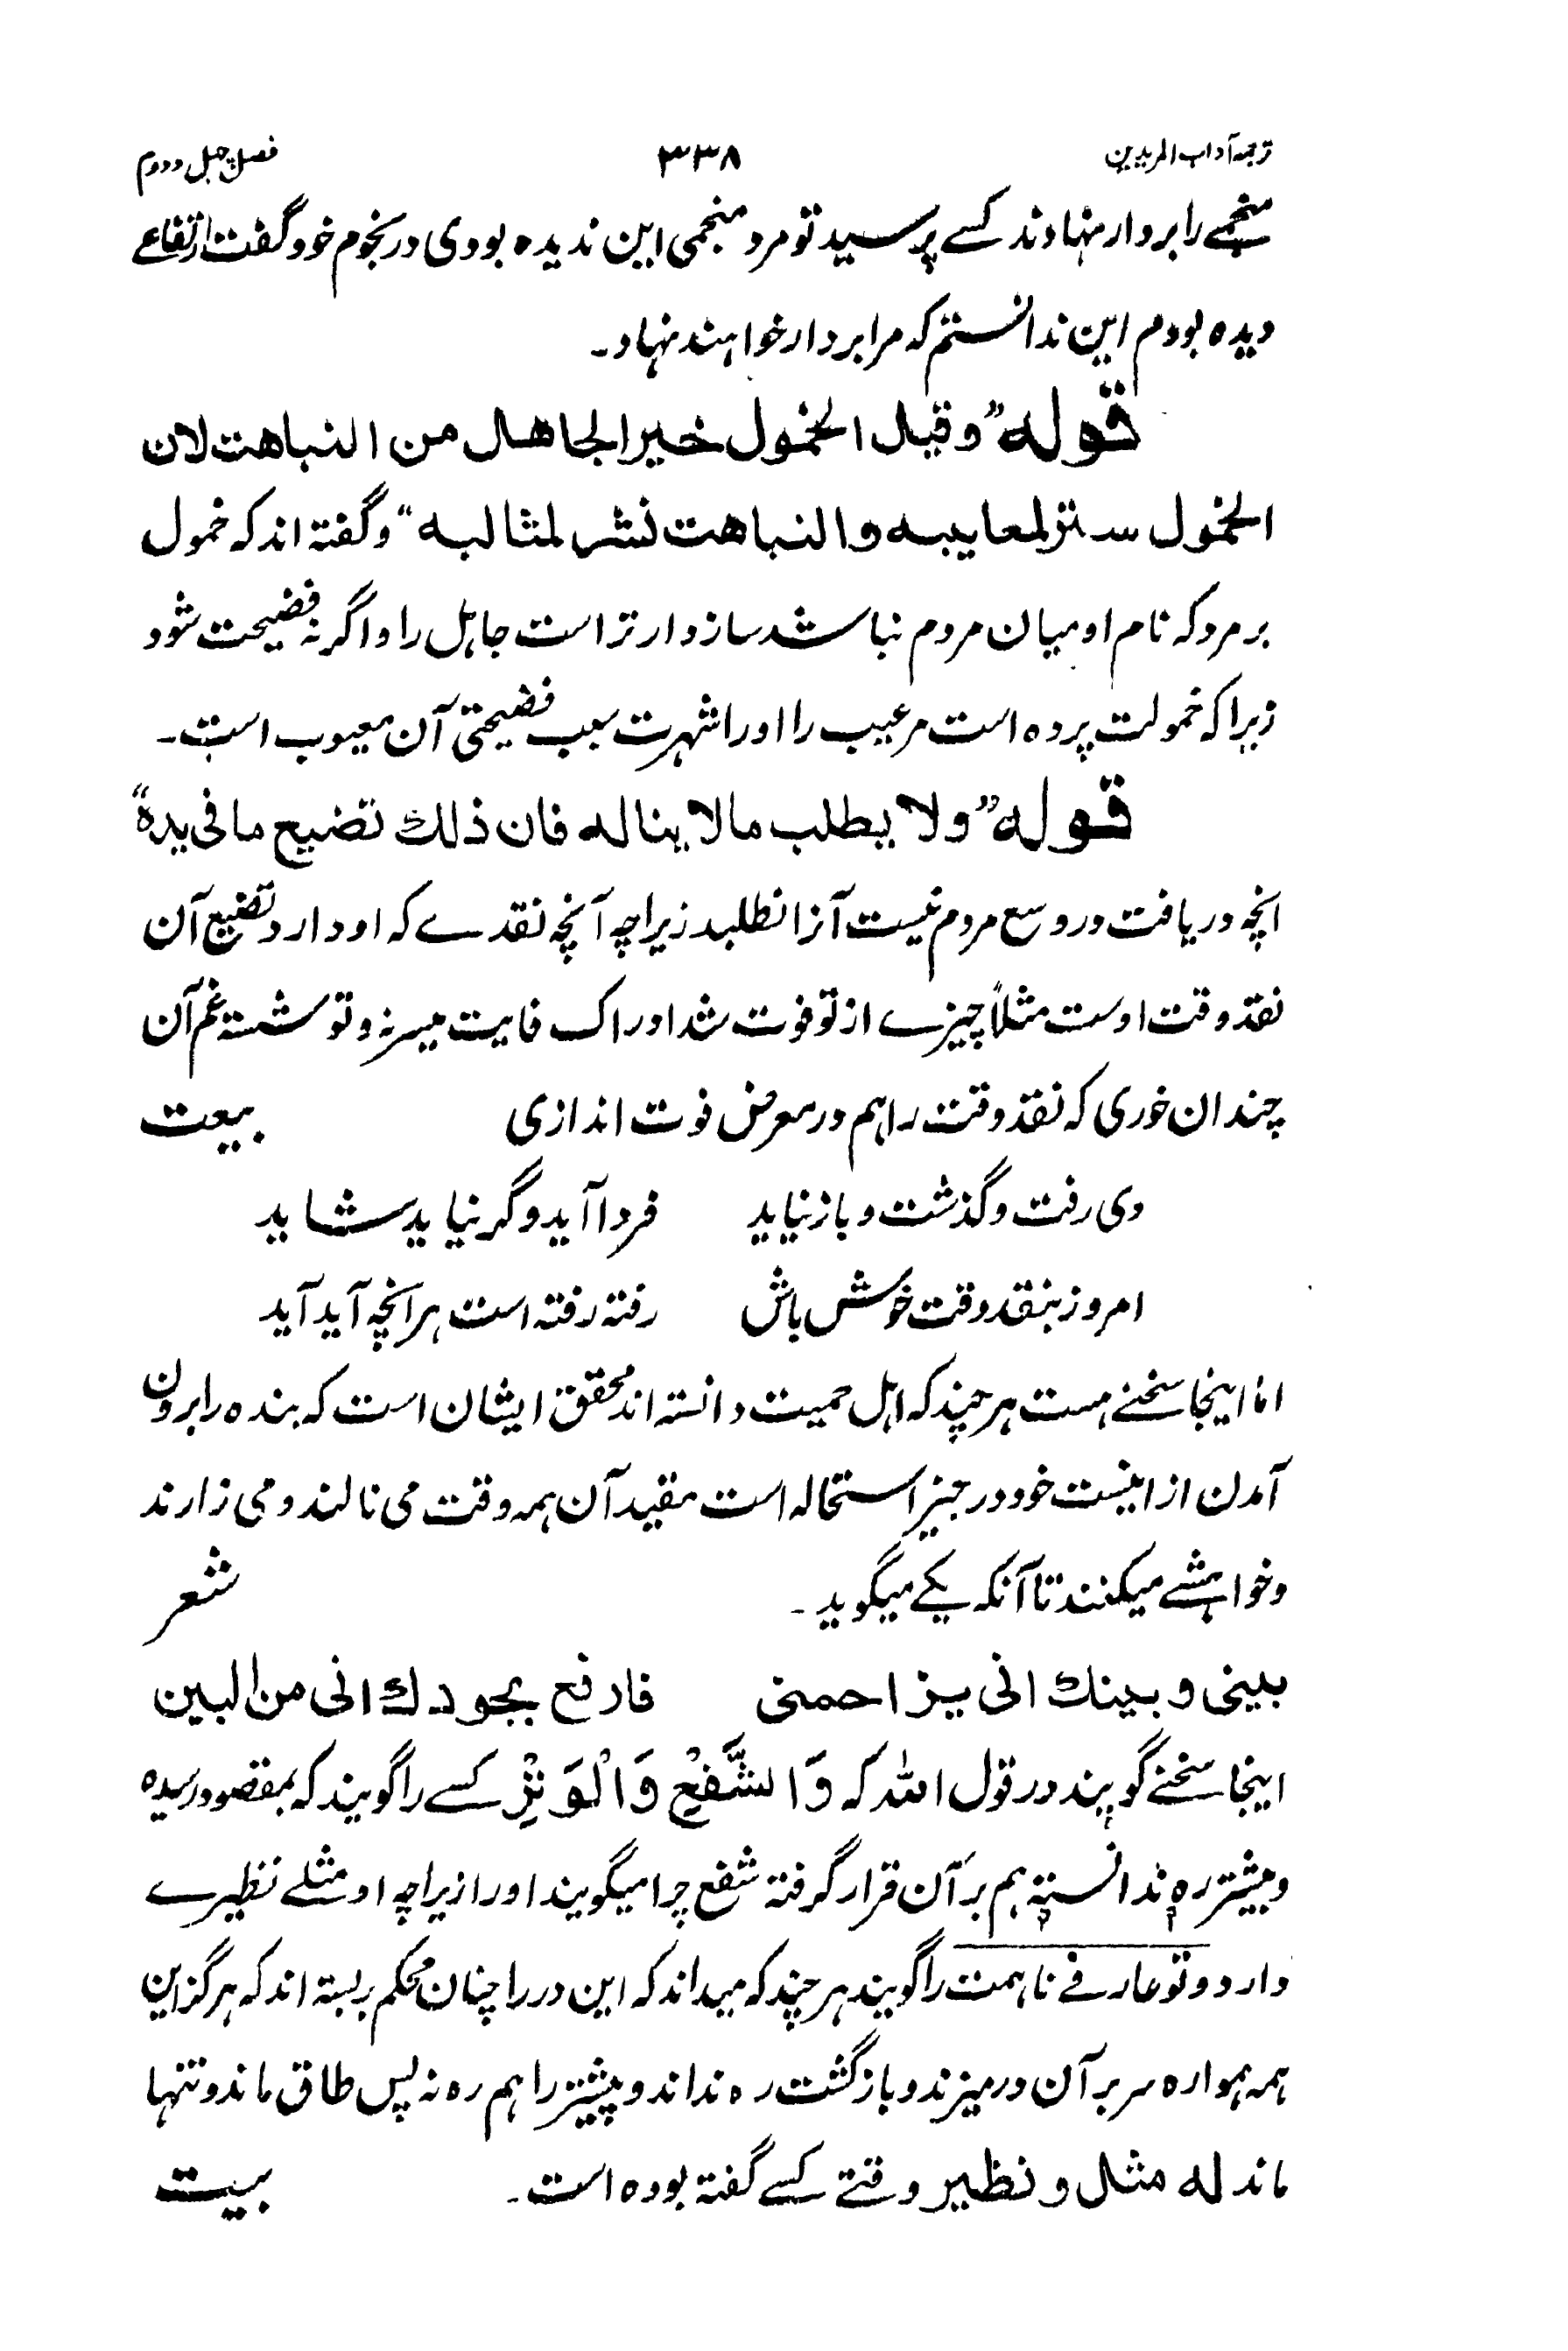 ترجمہ آداب المریدین ۳۳۸ فصل چہل و دوم
منجمے را بر دار نہادند کسے پرسید تو مرد منجمی این ندیدہ بودی در نجوم خود گفت ارتفاعے
دیدہ بودم این ندانستم کہ مرا بر دار خواہند نہاد۔
قولہ ”وقیل الخمول خیر الجاھل من النباھت لان
الخمول ستر لمعایبہ والنباھت نشر لمثالبہ“ وگفتہ اند کہ خمول
بر مرد کہ نام او میان مردم نباشد سازوار تر است جاہل را و اگر نہ فضیحت شود
زیرا کہ خمولت پردہ است مر عیب را او را شہرت سبب فضیحتی آن معیوب است۔
قولہ ”ولا یطلب مالا ینالہ فان ذلك تضیع مافی یدہ“
انچہ دریافت در وسع مردم نیست آنرا نطلبد زیراچہ آنچہ نقدے کہ او دارد تضیع آن
نقد وقت اوست مثلاً چیزے از تو فوت شد اوراک فایت میسر نہ و تو شستہ غم آن
چندان خوری کہ نقد وقت را ہم در معرض فوت اندازی بیعت
دی رفت و گذشت و باز نیاید فردا آید و گر نیاید شاید
امروز بنقد وقت خوش باش رفتہ رفتہ است ہر انچہ آید آید
اما اینجا سخنے ہست ہر چند کہ اہل حمیت دانستہ اند محقق ایشان است کہ بندہ را برون
آمدن از انیست خود در حیز استحالہ است مقید آن ہمہ وقت می نالند و می زارند
و خواہشے میکنند تا آنکہ یکے میگوید۔ شعر
بینی و بینك انی یزاحمنی فارفع بجودك انی من البین
اینجا سخنے گویند در قول اللہ کہ وَالشَّفْعِ وَالْوَتْرِ کسے را گویند کہ بمقصود رسیدہ
و بیشتر رہ ندانستہ ہم بر آن قرار گرفتہ شفع چرا میگویند او را زیراچہ او مثلے نظیرے
دارد و تو عارفے ناہمت را گویند ہر چند کہ میداند کہ این در را چنان محکم بر بستہ اند کہ ہرگز این
ہمہ ہموارہ سر بر آن در میزند و بازگشت رہ نداند و پیشتر را ہم رہ نہ پس طاق ماند و تنہا
ماند لہ مثل و نظیر وقتے کسے گفتہ بودہ است۔ بیت